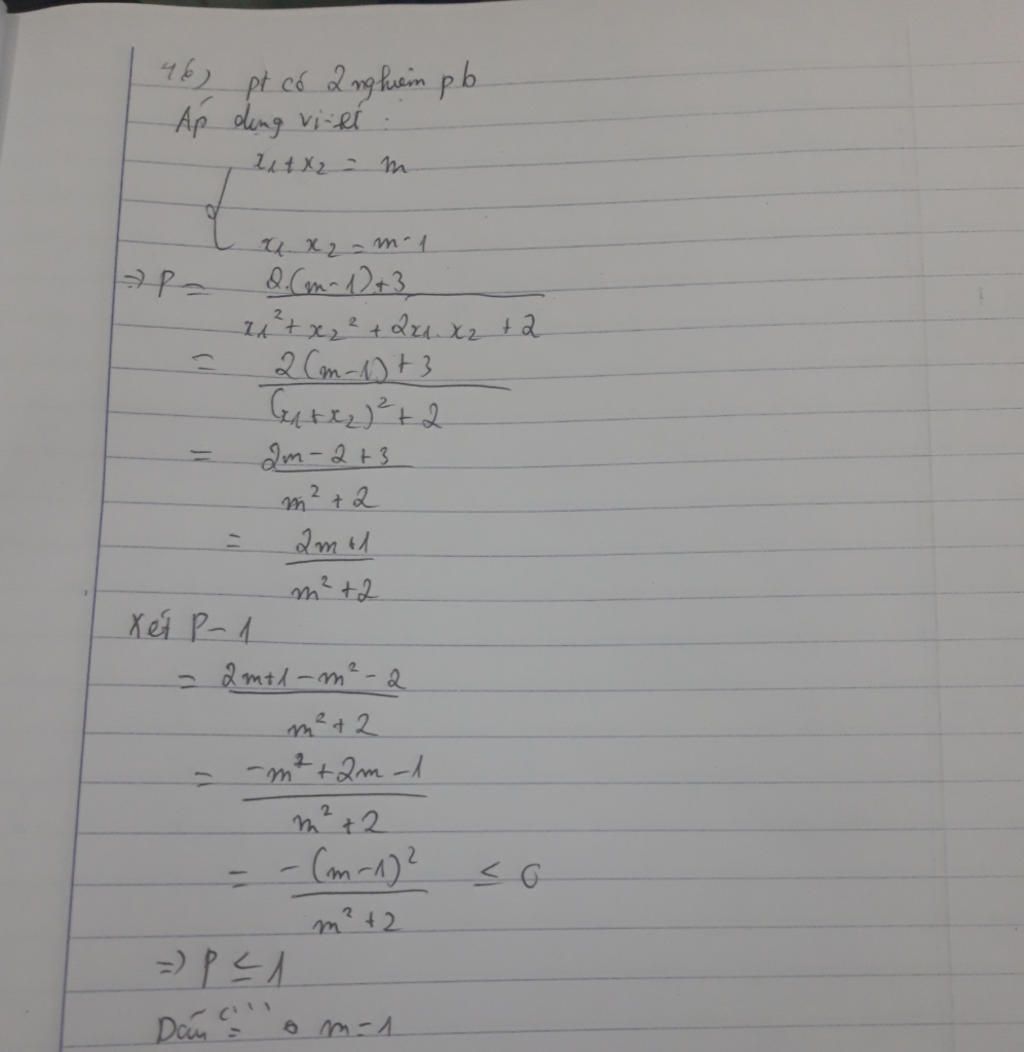 4b) pt có 2 nghiệm pb
Áp dụng vi-ét :
x₁ + x₂ = m
x₁ . x₂ = m - 1
⇒ P = \frac{2.(m-1)+3}{x₁² + x₂² + 2x₁.x₂ + 2}
= \frac{2(m-1)+3}{(x₁+x₂)² + 2}
= \frac{2m - 2 + 3}{m² + 2}
= \frac{2m+1}{m² + 2}
Xét P - 1
= \frac{2m+1 - m² - 2}{m² + 2}
= \frac{-m² + 2m - 1}{m² + 2}
= \frac{-(m-1)²}{m² + 2} ≤ 0
⇒ P ≤ 1
Dấu "=" m = 1